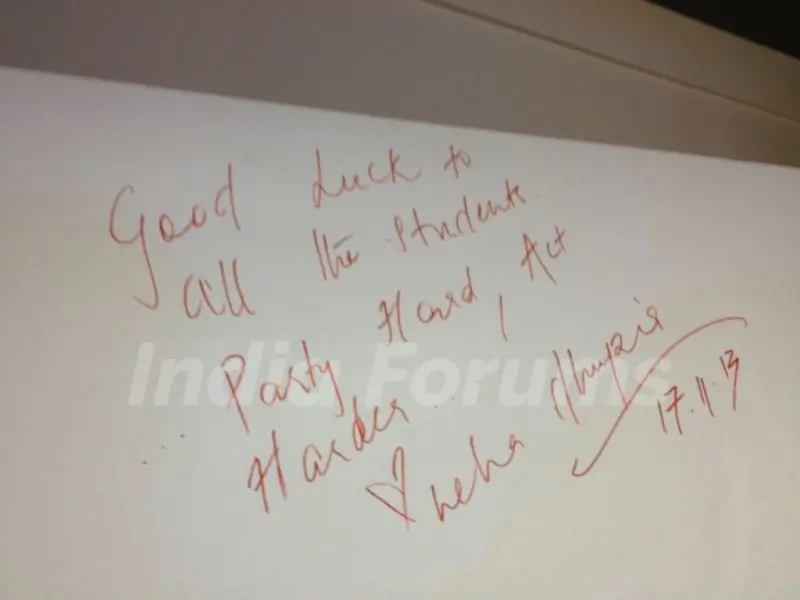 Good Luck to
all the students....
... Party Hard, Act
Harder...
neha dhupia
17.11.13
India Forums